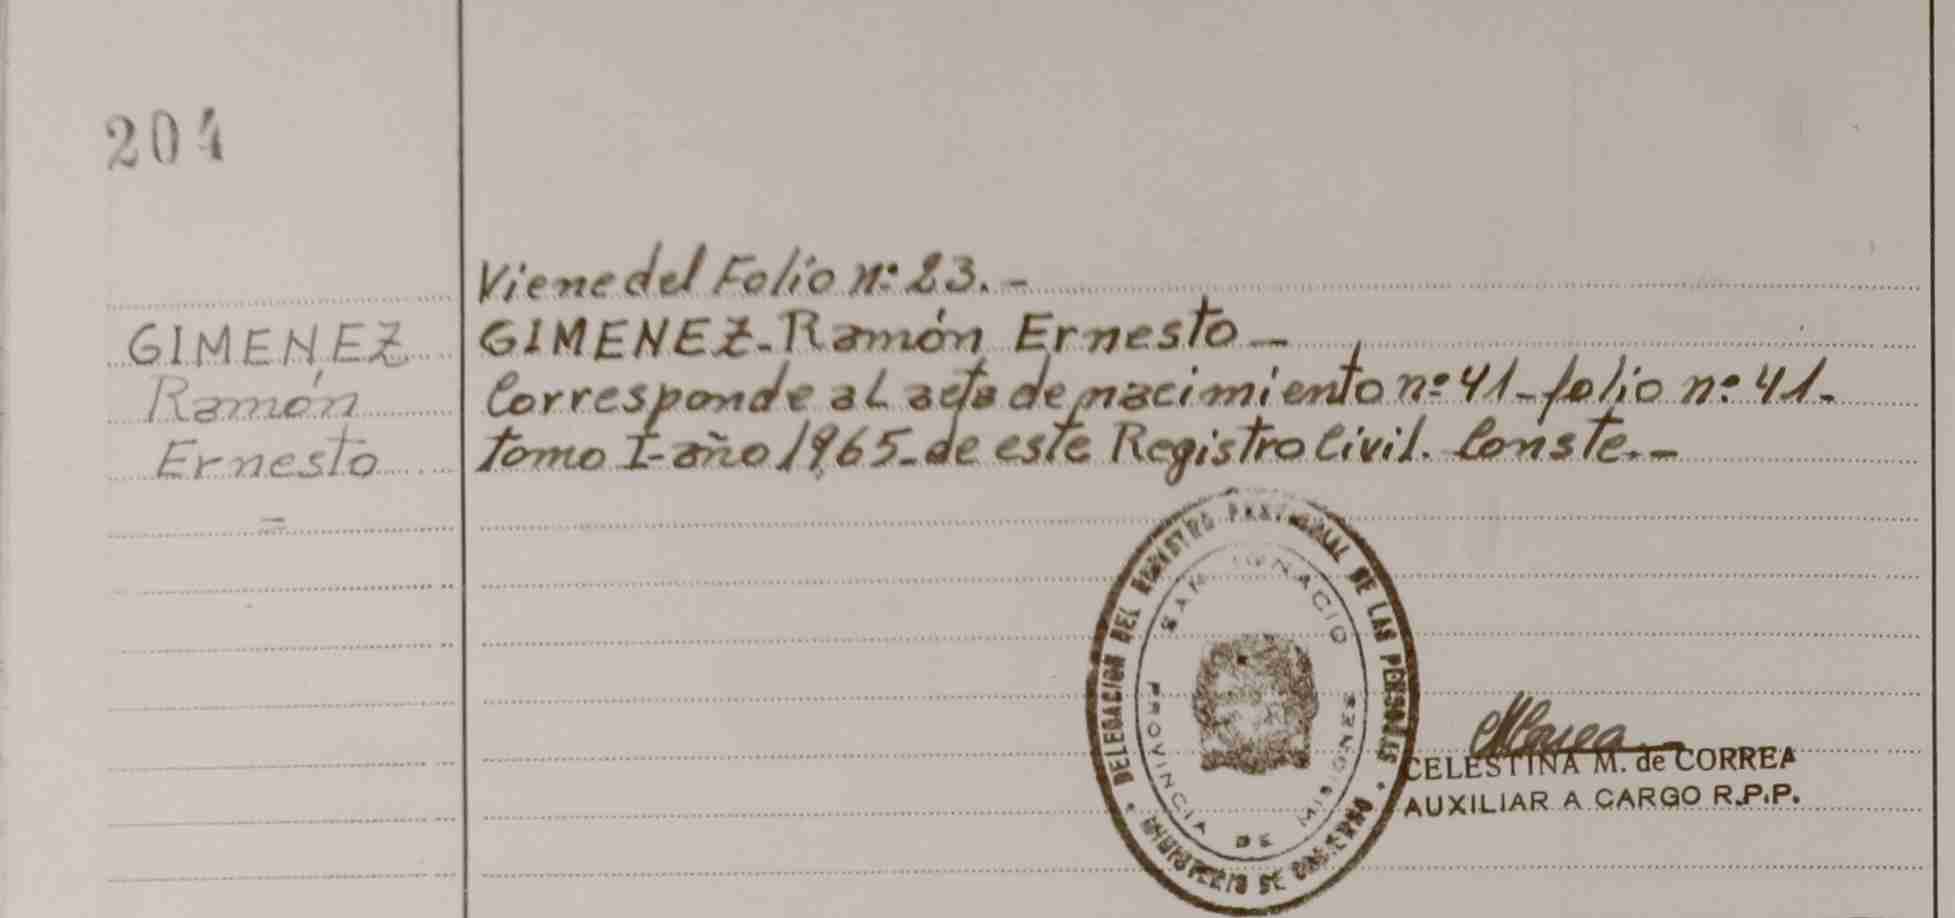 204
GIMENEZ
Ramón
Ernesto
Viene del Folio nº 23.-
GIMENEZ-Ramón Ernesto-
Corresponde al acta de nacimiento nº 41-folio nº 41-
tomo I-año 1965-de este Registro Civil. Conste.-
DELEGACION DEL REGISTRO PROVINCIAL DE LAS PERSONAS
SAN IGNACIO
PROVINCIA DE MISIONES
MINISTERIO DE GOBIERNO
CELESTINA M. de CORREA
AUXILIAR A CARGO R.P.P.